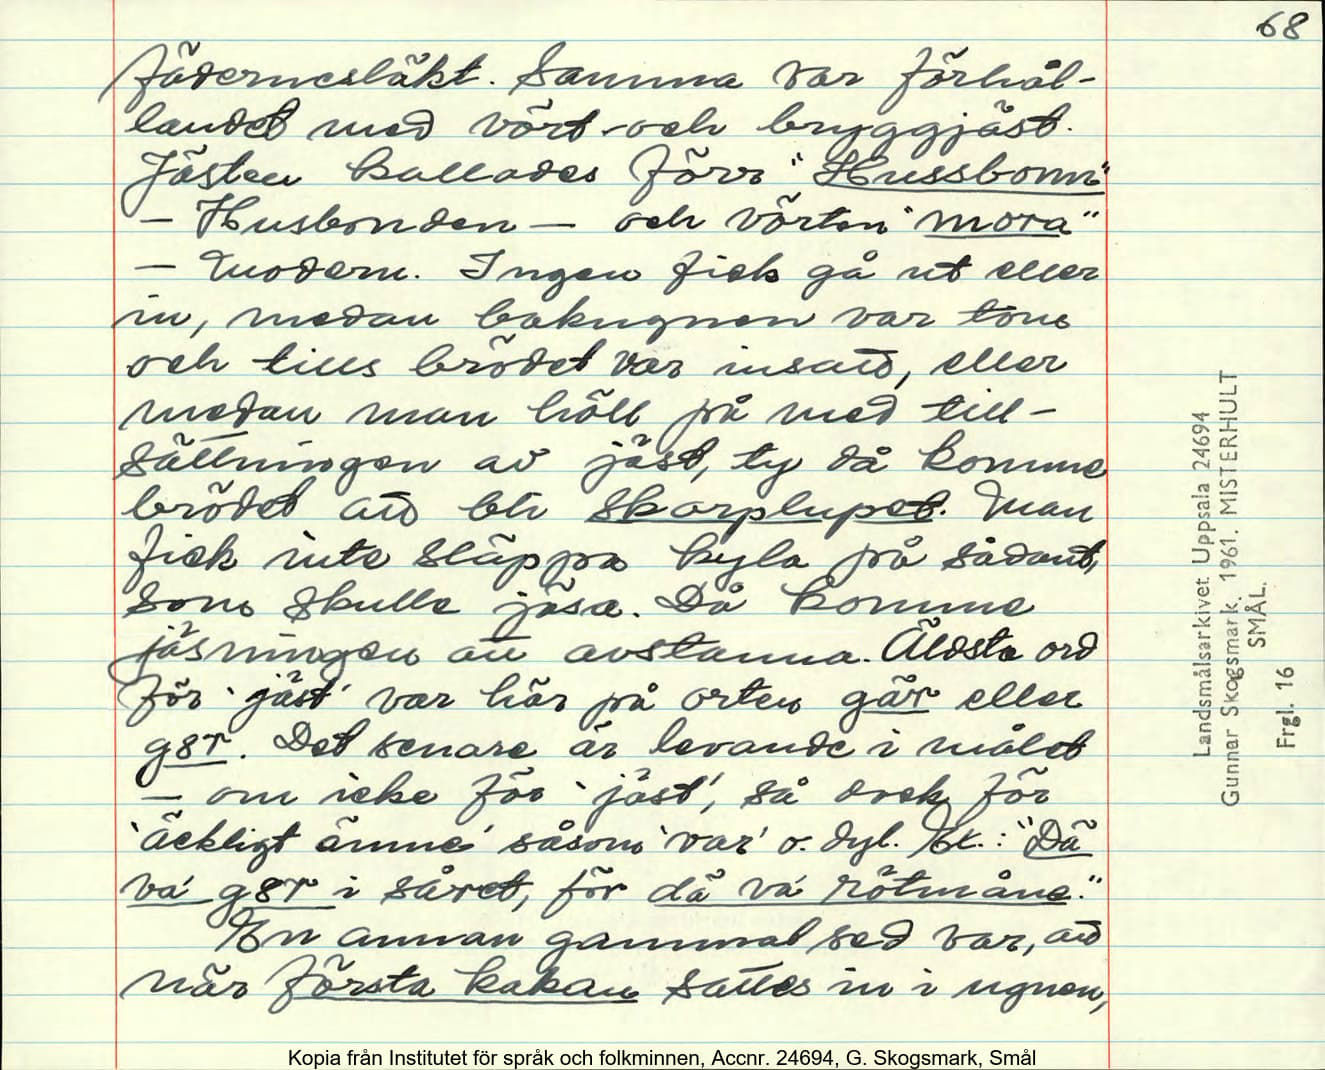 68
fädernesläkt. Samma var förhål-
landet med vört- och bryggjäst.
Jästen kallades förr "Hussbonn"
– Husbonden – och vörten "mora"
– Modern. Ingen fick gå ut eller
in, medan bakugnen var tom
och tills brödet var insatt, eller
medan man höll på med till-
sättningen av jäst, ty då komme
brödet att bli skorplupet. Man
fick inte släppa kyla på sådant,
som skulle jäsa. Då komme
jäsningen att avstanna. Äldsta ord
för 'jäst' var här på orten gär eller
g8r. Det senare är levande i målet
– om icke för 'jäst', så dock för
'äckligt ämne' såsom 'var' o. dyl. Ex.: "Dä
va' g8r i såret, för dä va' rötmåne."
En annan gammal sed var, att
när första kakan sattes in i ugnen,
Landsmålsarkivet Uppsala 24694
Gunnar Skogsmark. 1961. MISTERHULT
SMÅL.
Frgl. 16
Kopia från Institutet för språk och folkminnen, Accnr. 24694, G. Skogsmark, Smål